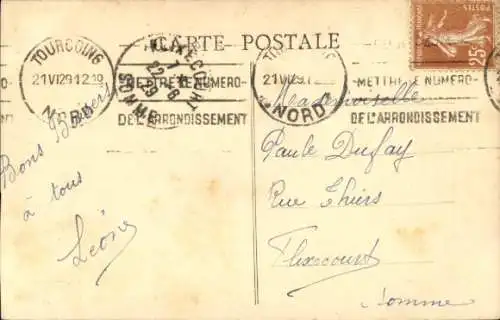 CARTE POSTALE
TOURCOING
21 VI 29 12
NORD
FLIXECOURT
22-6
29
SOMME
METTRE LE NUMERO
DE L'ARRONDISSEMENT
21 VI 29 1
NORD
METTRE LE NUMERO
DE L'ARRONDISSEMENT
POSTES
25c
Bons Baisers
à tous
Léone
Mademoiselle
Paule Dufay
Rue Thiers
Flixecourt
Somme